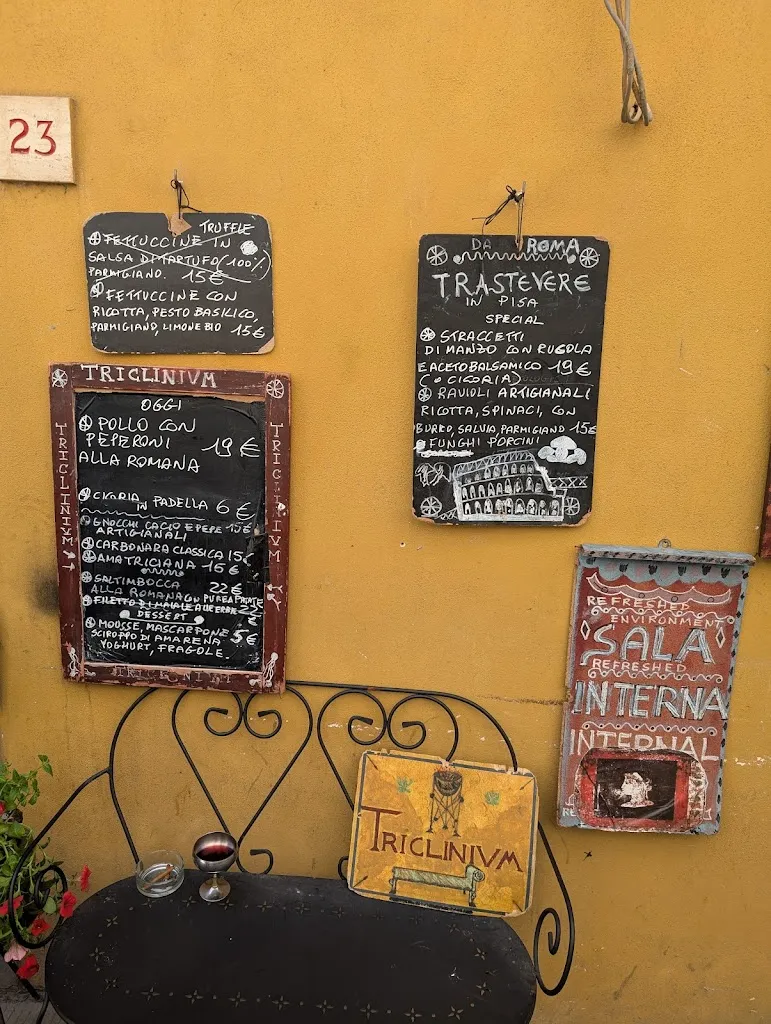 23
TRUFFLE
FETTUCCINE IN
SALSA DI TARTUFO (100%)
PARMIGIANO. 15€
FETTUCCINE CON
RICOTTA, PESTO BASILICO,
PARMIGIANO, LIMONE BIO 15€
DA ROMA
TRASTEVERE
IN PISA
SPECIAL
STRACCETTI
DI MANZO CON RUGOLA
E ACETO BALSAMICO 19€
(O CICORIA)
RAVIOLI ARTIGIANALI
RICOTTA, SPINACI, CON
BURRO, SALVIA, PARMIGIANO 15€
FUNGHI PORCINI
TRICLINIVM
TRICLINIVM
TRICLINIVM
OGGI
POLLO CON
PEPERONI 19€
ALLA ROMANA
CICORIA IN PADELLA 6€
GNOCCHI CACIO E PEPE
ARTIGIANALI
CARBONARA CLASSICA 15€
AMATRICIANA 16€
SALTIMBOCCA 22€
ALLA ROMANA CON PUREA PATATE
FILETTO DI MAIALE ALLE ERBE 22€
DESSERT
MOUSSE, MASCARPONE 5€
SCIROPPO DI AMARENA
YOGHURT, FRAGOLE.
REFRESHED
ENVIRONMENT
SALA
REFRESHED
INTERNA
INTERNAL
TRICLINIVM